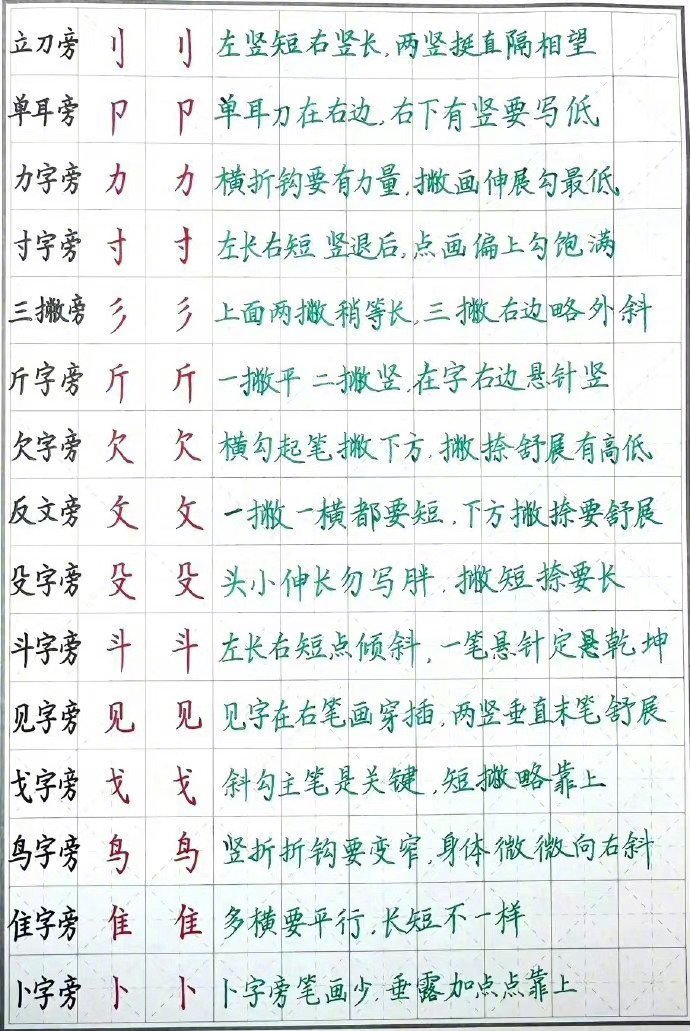 立刀旁 刂 刂 左竖短右竖长,两竖挺直隔相望
单耳旁 卩 卩 单耳刀在右边,右下有竖要写低
力字旁 力 力 横折钩要有力量,撇画伸展勾最低
寸字旁 寸 寸 左长右短 竖退后,点画偏上勾饱满
三撇旁 彡 彡 上面两撇稍等长,三撇右边略外斜
斤字旁 斤 斤 一撇平 二撇竖,在字右边悬针竖
欠字旁 欠 欠 横勾起笔撇下方,撇捺舒展有高低
反文旁 攵 攵 一撇一横都要短,下方撇捺要舒展
殳字旁 殳 殳 头小伸长勿写胖,撇短捺要长
斗字旁 斗 斗 左长右短点倾斜,一笔悬针定悬乾坤
见字旁 见 见 见字在右笔画穿插,两竖垂直末笔舒展
戈字旁 戈 戈 斜勾主笔是关键,短撇略靠上
鸟字旁 鸟 鸟 竖折折钩要变窄,身体微微向右斜
隹字旁 隹 隹 多横要平行,长短不一样
卜字旁 卜 卜 卜字旁笔画少,垂露加点点靠上